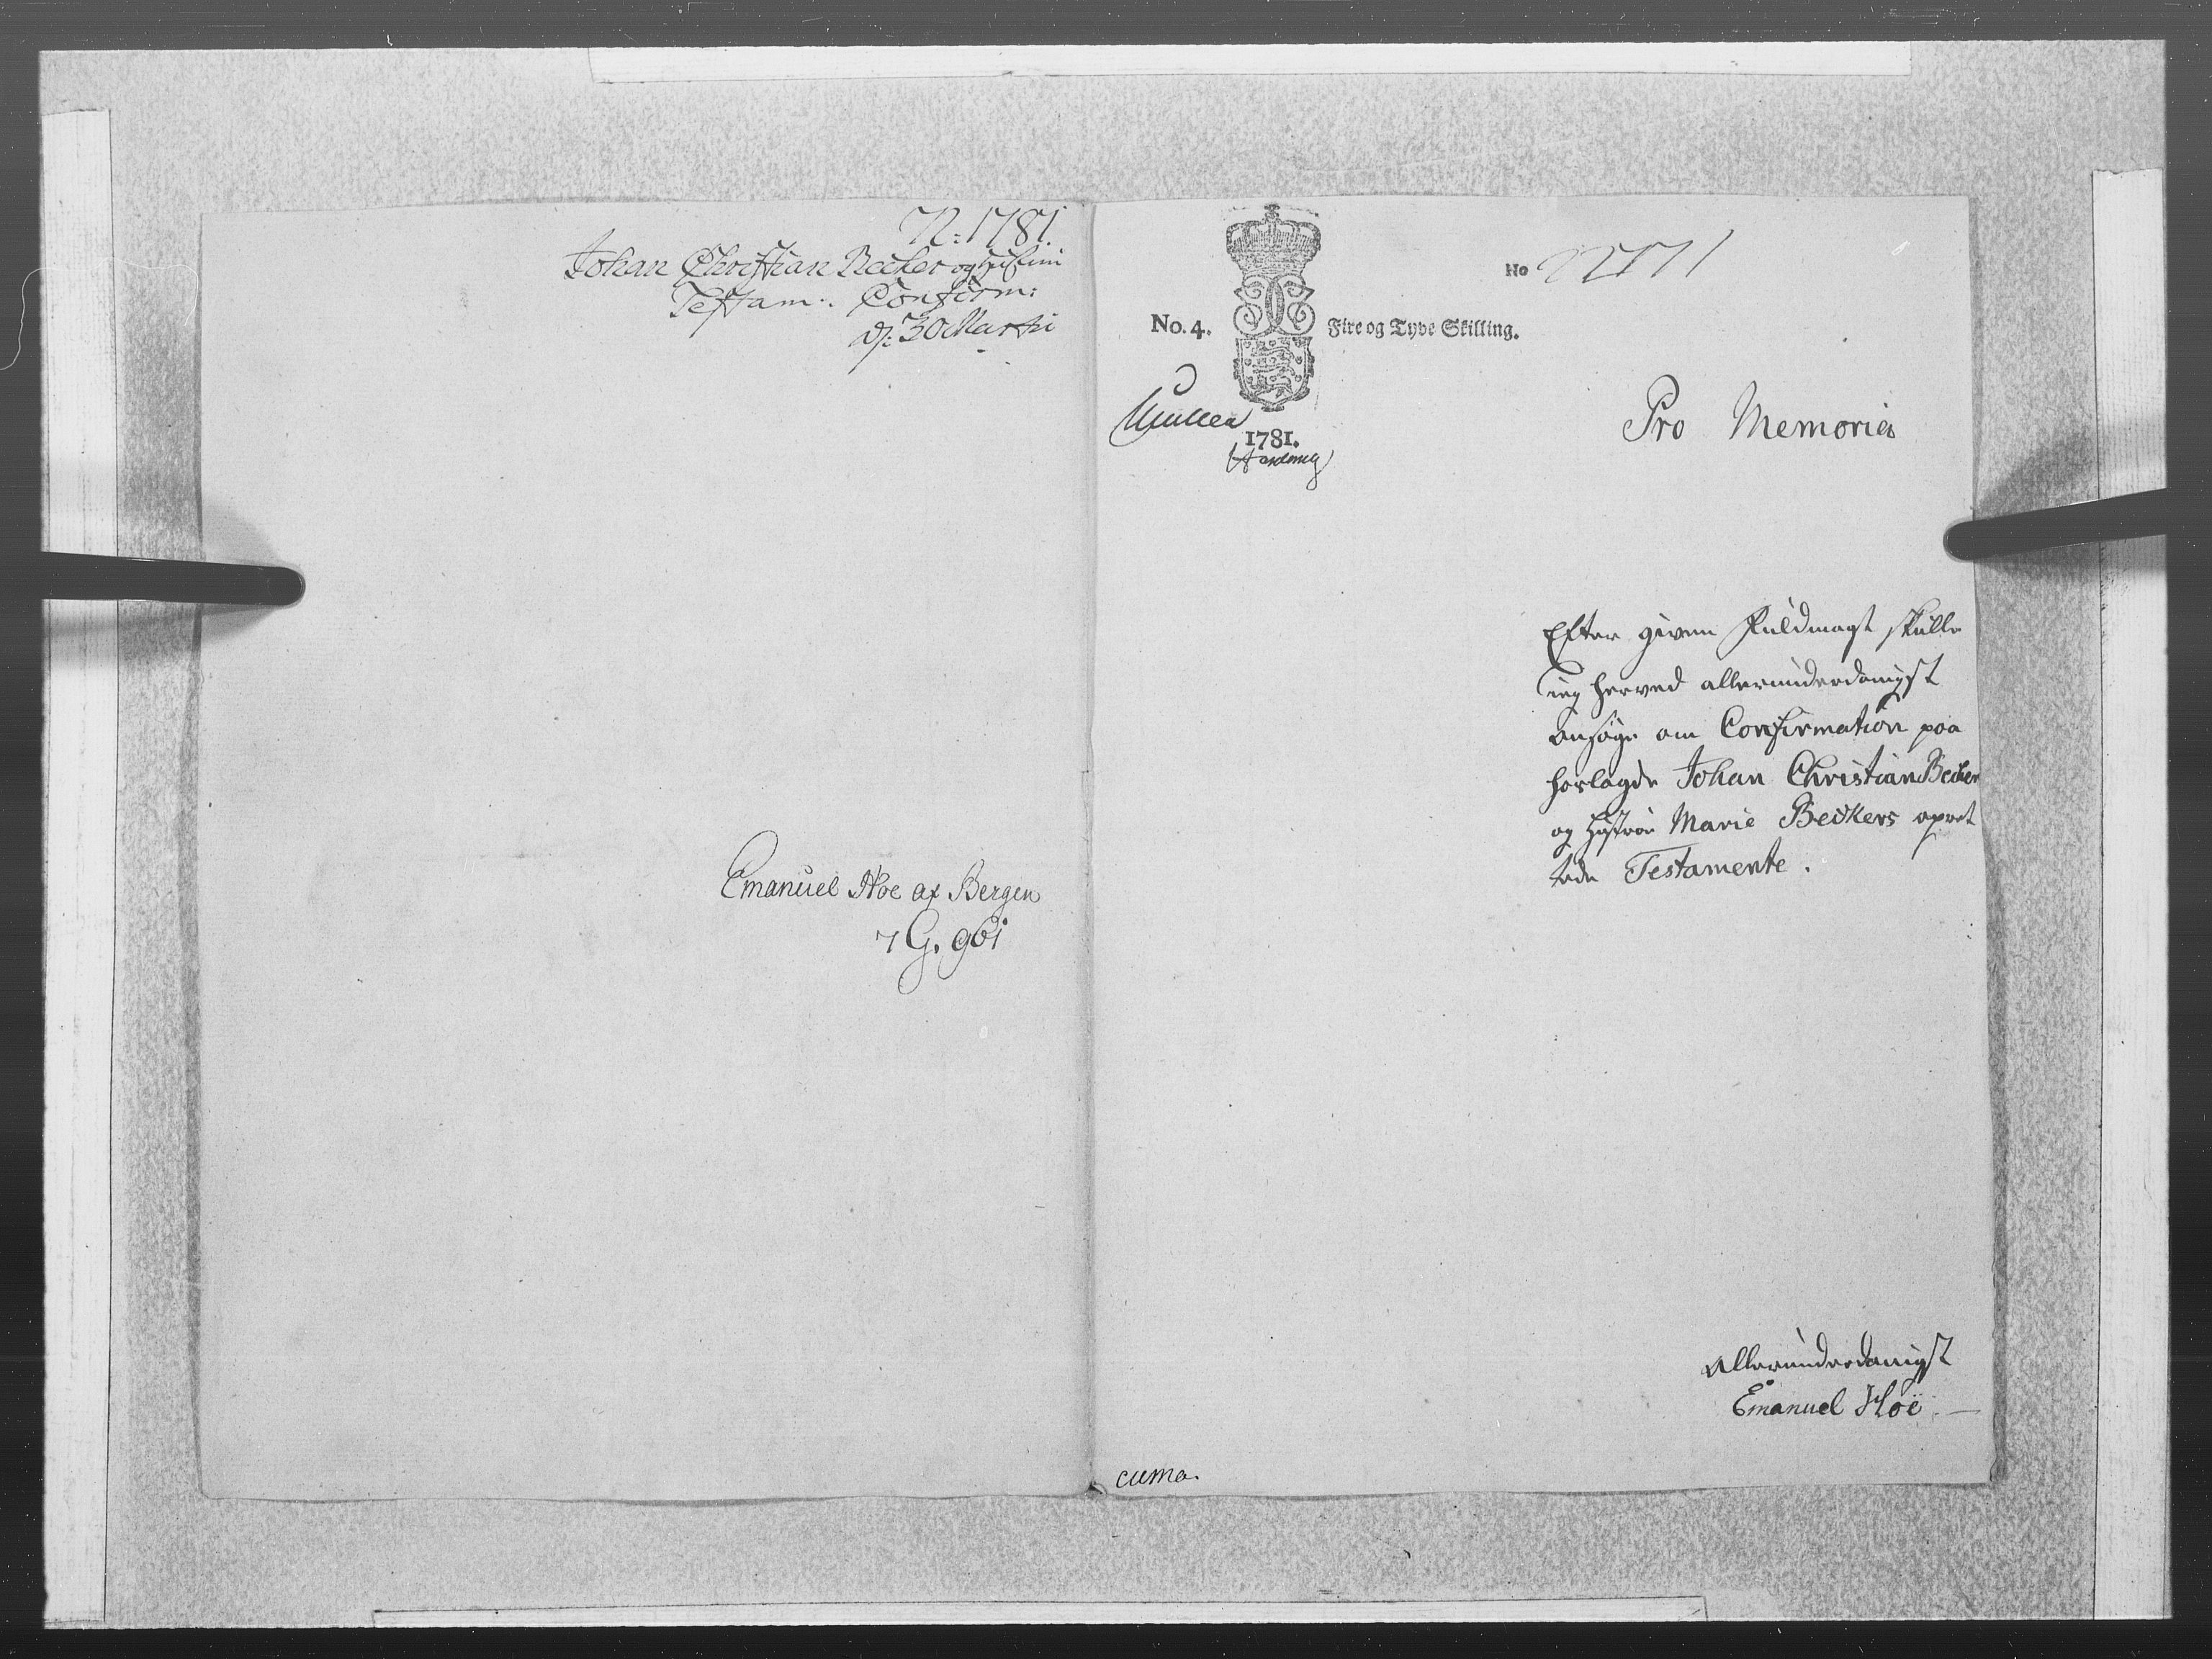 N: 1781.
Johan Christian Becker og Hustrue
Testam: Confirm:
d: 30 Marti
Emanuel Høe af Bergen
7 G. 961
No
No. 4. Fire og Tyve Skilling.
1781.
Pro Memoria
Efter given Fuldmagt skulle
ieg herved allerunderdanigst
ansøge om Confirmation paa
hoslagde Johan Christian Becker
og Hustrue Marie Beckers opret
tede Testamente.
Allerunderdanigst
Emanuel Høe